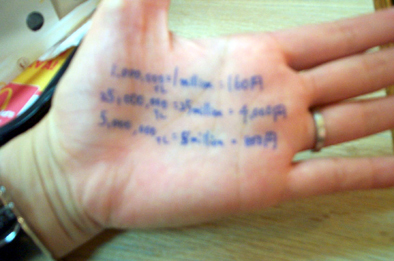 1,000,000 TL = 1 million = 160円
25,000,000 TL = 25 million = 4,000円
5,000,000 TL = 5 million = 800円